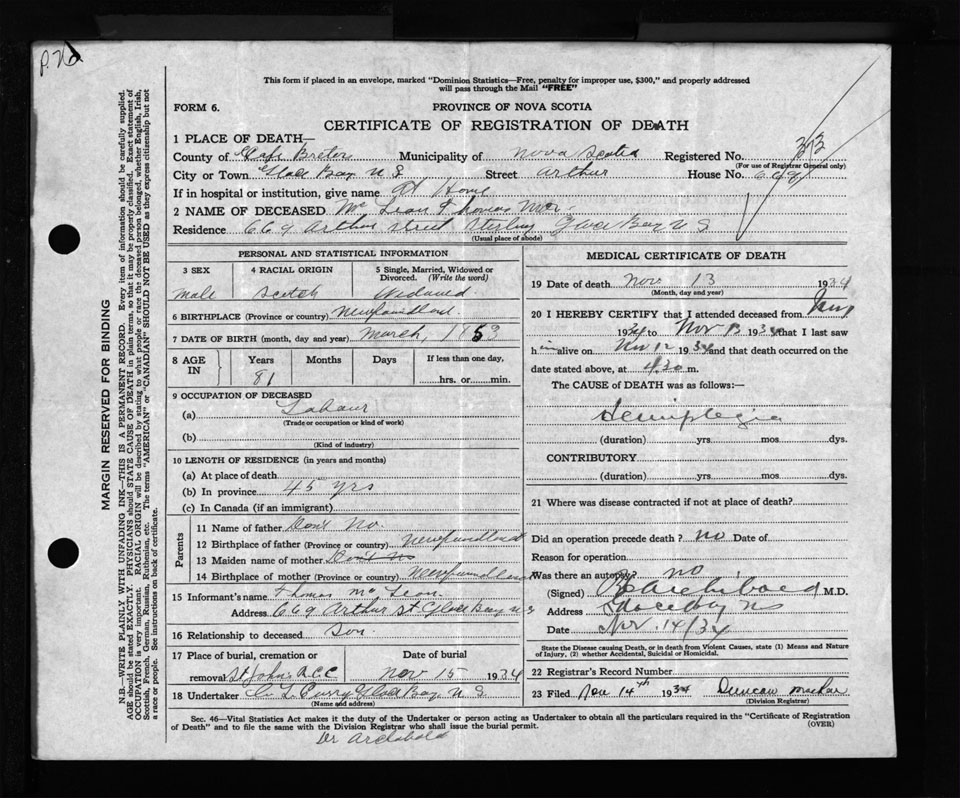 P.76
This form if placed in an envelope, marked "Dominion Statistics—Free, penalty for improper use, $300," and properly addressed
will pass through the Mail "FREE"
FORM 6.
PROVINCE OF NOVA SCOTIA
CERTIFICATE OF REGISTRATION OF DEATH
1 PLACE OF DEATH—
County of Cape Breton Municipality of Nova Scotia Registered No. 323
(For use of Registrar General only)
City or Town Glace Bay N S Street Arthur House No. 669
If in hospital or institution, give name At Home
2 NAME OF DECEASED Mc Lean Thomas Mr.
Residence 669 Arthur Street Sterling Glace Bay N S
(Usual place of abode)
PERSONAL AND STATISTICAL INFORMATION
3 SEX
male
4 RACIAL ORIGIN
Scotch
5 Single, Married, Widowed or Divorced. (Write the word)
Widowed
6 BIRTHPLACE (Province or country) Newfoundland
7 DATE OF BIRTH (month, day and year) March, 1853
8 AGE IN
Years Months Days
81
If less than one day,
hrs. or min.
9 OCCUPATION OF DECEASED
(a) Labour
(Trade or occupation or kind of work)
(b)
(Kind of industry)
10 LENGTH OF RESIDENCE (in years and months)
(a) At place of death
(b) In province 45 yrs
(c) In Canada (if an immigrant)
Parents
11 Name of father Dont No.
12 Birthplace of father (Province or country) Newfoundland
13 Maiden name of mother Dont No
14 Birthplace of mother (Province or country) Newfoundland
15 Informant's name Thomas Mc Lean
Address 669 Arthur St Glace Bay N S
16 Relationship to deceased Son.
17 Place of burial, cremation or removal St Johns ACC
Date of burial
Nov 15 1934
18 Undertaker Curry Glace Bay N S
(Name and address)
MEDICAL CERTIFICATE OF DEATH
19 Date of death Nov 13 1934
(Month, day and year)
20 I HEREBY CERTIFY that I attended deceased from
1934 to Nov 13 1934 that I last saw
him alive on Nov 12 1934 and that death occurred on the
date stated above, at 4.30 m.
The CAUSE of DEATH was as follows:—
Hemiplegia
(duration) yrs. mos. dys.
CONTRIBUTORY
(duration) yrs. mos. dys.
21 Where was disease contracted if not at place of death?
Did an operation precede death? No Date of
Reason for operation
Was there an autopsy? no
(Signed) Archibald M.D.
Address Glace Bay NS
Date Nov. 14/34
State the Disease causing Death, or in death from Violent Causes, state (1) Means and Nature
of Injury, (2) whether Accidental, Suicidal or Homicidal.
22 Registrar's Record Number
23 Filed Nov 14th 1934 Duncan MacRae
(Division Registrar)
Sec. 46—Vital Statistics Act makes it the duty of the Undertaker or person acting as Undertaker to obtain all the particulars required in the "Certificate of Registration
of Death" and to file the same with the Division Registrar who shall issue the burial permit.
(OVER)
Dr Archibald
MARGIN RESERVED FOR BINDING
N.B.—WRITE PLAINLY WITH UNFADING INK—THIS IS A PERMANENT RECORD. Every item of information should be carefully supplied.
AGE should be stated EXACTLY. PHYSICIANS should STATE CAUSE OF DEATH in plain terms, so that it may be properly classified. Exact statement of
OCCUPATION is very important. RACIAL ORIGIN will be described by stating to what people or race the deceased person belonged, whether English, Irish,
Scottish, French, German, Russian, Ruthenian, etc. The terms "AMERICAN" or "CANADIAN" SHOULD NOT BE USED as they express citizenship but not
a race or people. See instructions on back of certificate.